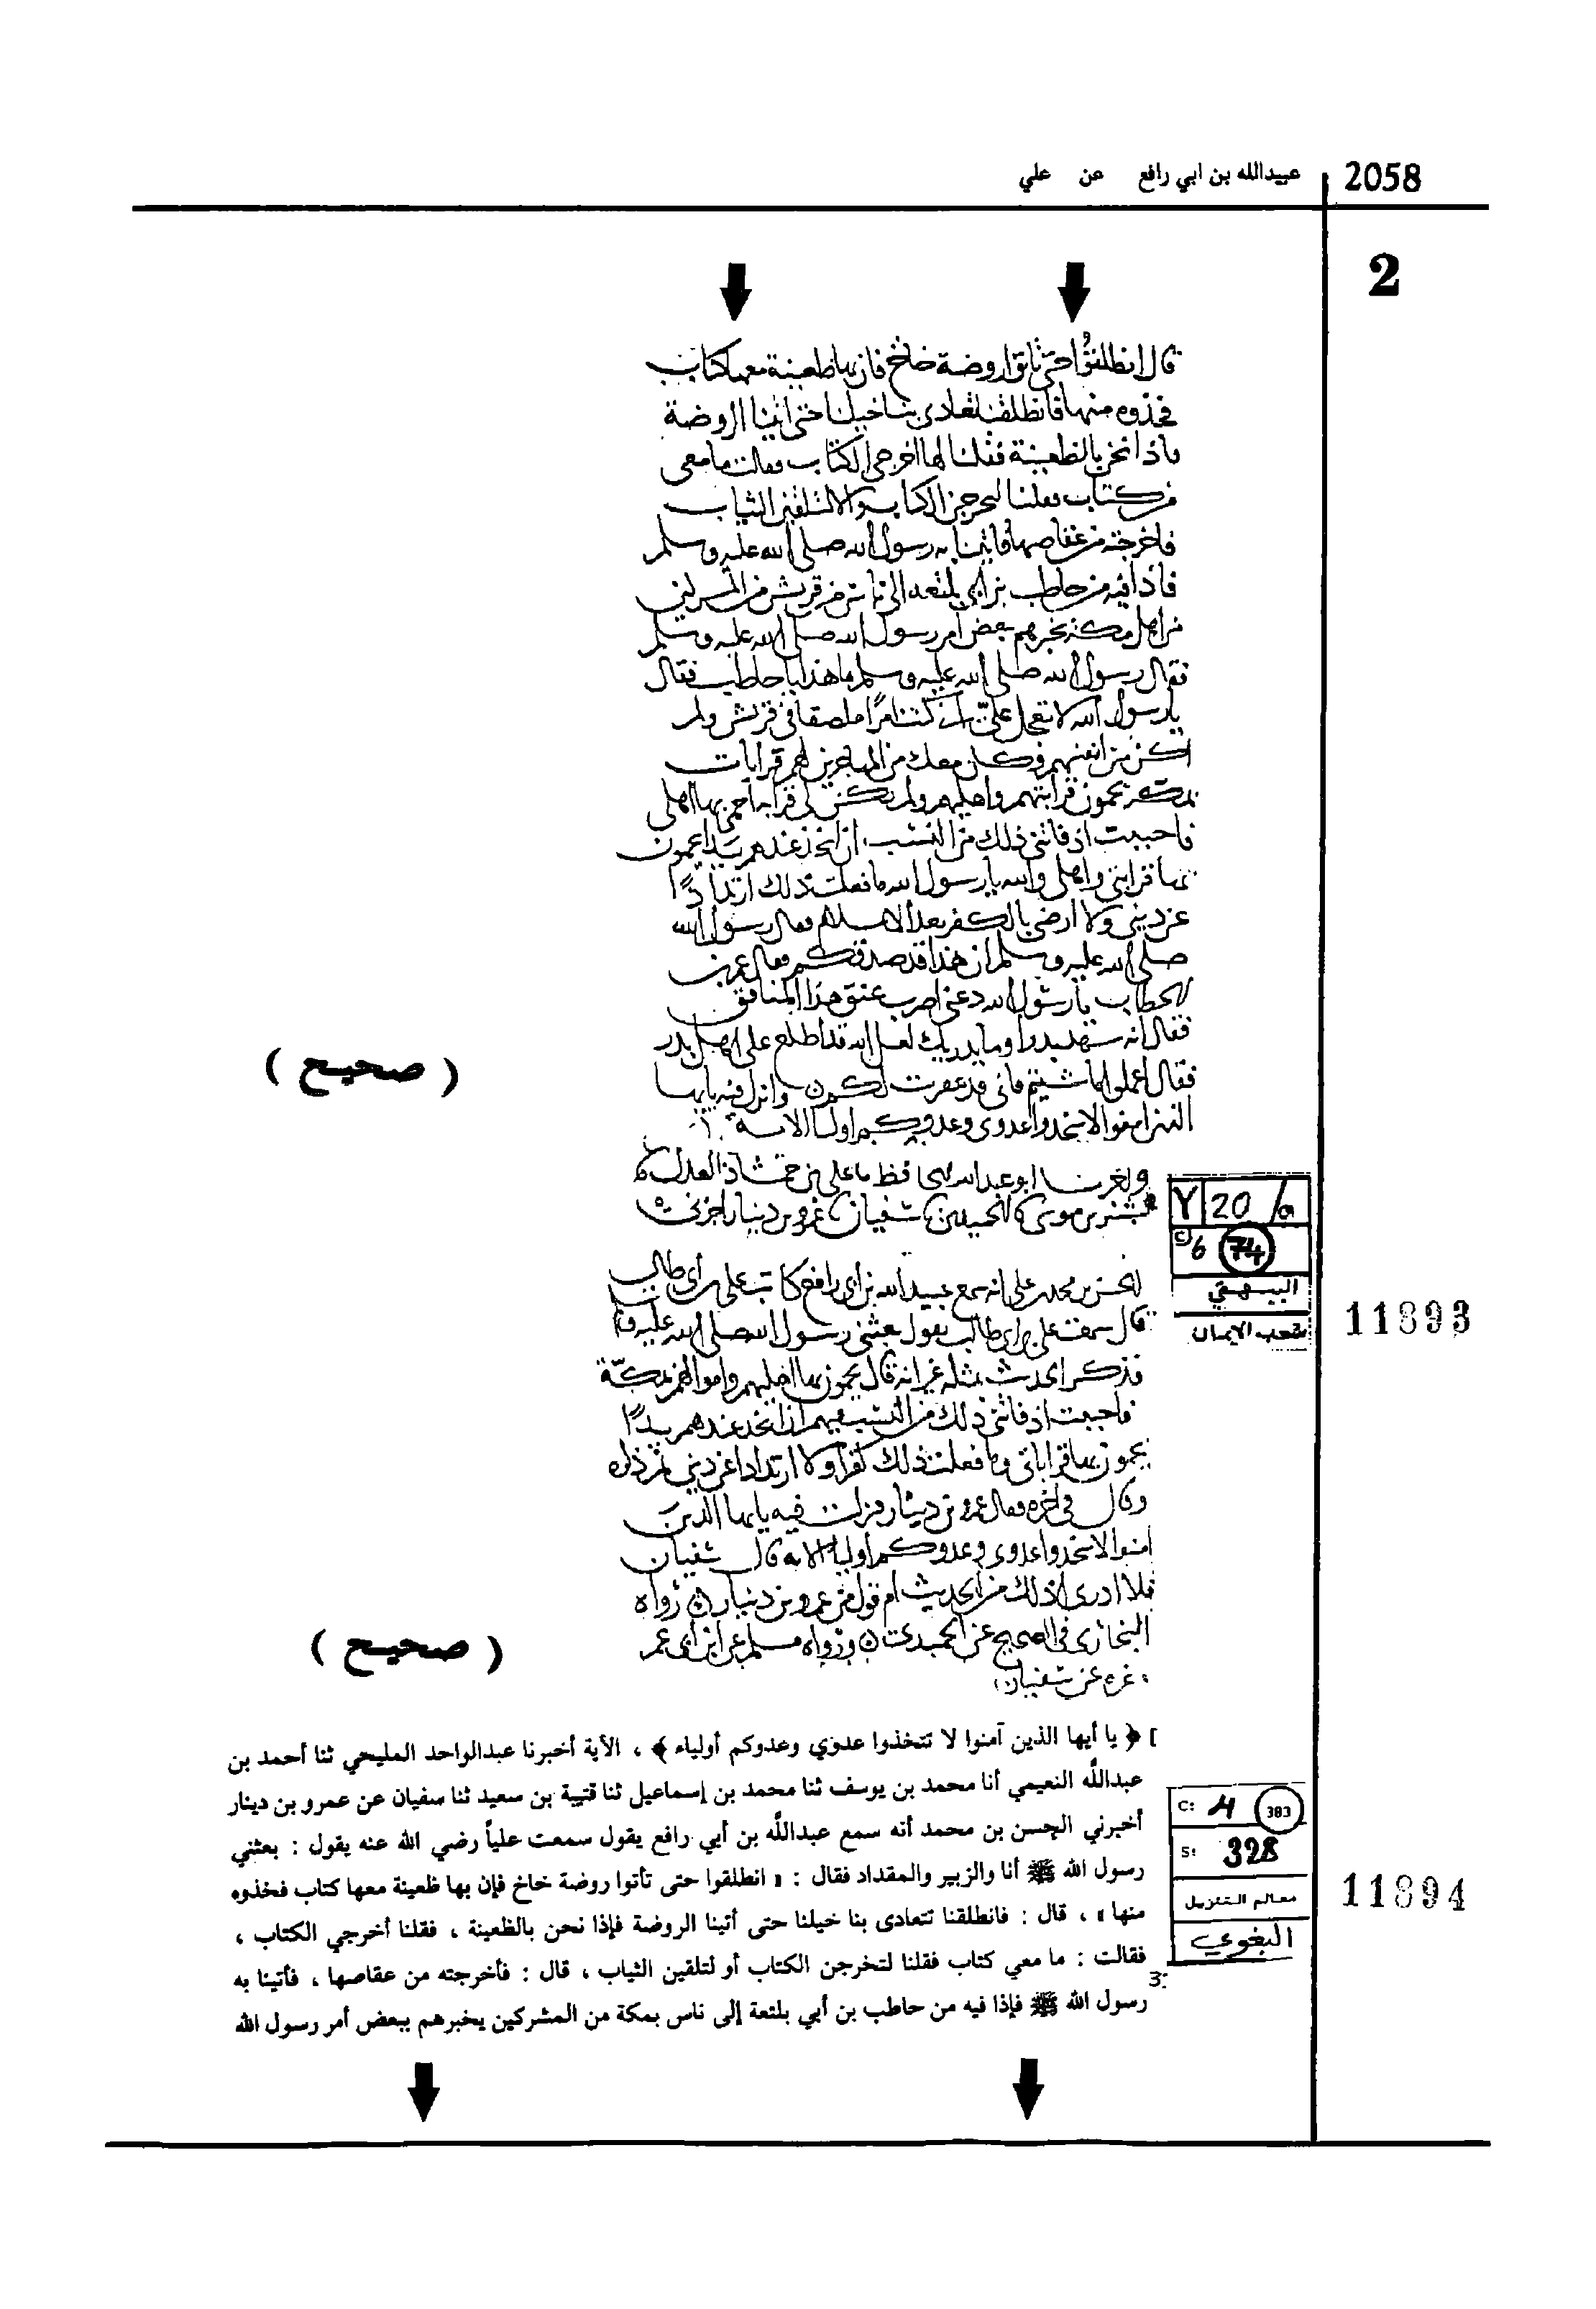 2058
عبيدالله بن ابي رافع عن علي
2
قال انطلقوا حتى تاتوا روضة خاخ فان بها ظعينة معها كتاب
فخذوه منها فانطلقنا تعادى بنا خيلنا حتى اتينا الروضة
فاذا نحن بالظعينة فقلنا لها اخرجي الكتاب فقالت ما معي
من كتاب فقلنا لتخرجن الكتاب والا لتلقين الثياب
فاخرجته من عقاصها فاتينا به رسول الله صلى الله عليه وسلم
فاذا فيه من حاطب بن ابي بلتعه الى ناس من قريش من المشركين
من اهل مكة يخبرهم ببعض امر رسول الله صلى الله عليه وسلم
فقال رسول الله صلى الله عليه وسلم ما هذا يا حاطب فقال
يا رسول الله لا تعجل عليّ كنت امرًا ملصقا في قريش ولم
اكن من انفسهم وكان معك من المهاجرين لهم قرابات
بمكة يحمون قرابتهم واهليهم ولم يكن لي قرابة احمي بها اهلي
فاحببت اذ فاتني ذلك من النسب ان اتخذ عندهم يدا يحمون
بها قرابتي واهلي والله يا رسول الله ما فعلت ذلك ارتدادًا
عن ديني ولا ارضى بالكفر بعد الاسلام فقال رسول الله
صلى الله عليه وسلم ان هذا قد صدقكم فقال عمر بن
الخطاب يا رسول الله دعني اضرب عنق هذا المنافق
فقال انه شهد بدرا وما يدريك لعل الله قد اطلع على اهل بدر
فقال اعملوا ما شئتم فاني قد غفرت لكم وانزل فيه يايها
الذين امنوا لا تتخذوا عدوي وعدوكم اوليا الاية
( صحيح )
ابو عبد الله الحافظ ما علي بن حمشاذ العدل
بشر بن موسى الحميدي سفيان عمرو بن دينار اخبرني
الحسن بن محمد بن علي انه سمع عبيد الله بن ابي رافع كاتب علي بن ابي طالب
قال سمعت علي بن ابي طالب يقول بعثني رسول الله صلى الله عليه و
فذكر الحديث بمثله غير انه قال يحمون بها اهليهم واموالهم بمكّة
فاحببت اذ فاتني ذلك من النسب فيهم ان اتخذ عندهم يدًا
يحمون بها قراباتي وما فعلت ذلك كفرا ولا ارتدادا عن ديني ثم ذكره
وقال في اخره فقال عمرو بن دينار فنزلت فيه يايها الذين
امنوا لا تتخذوا عدوي وعدوكم اوليا الاية قال سفيان
فلا ادري اذلك من الحديث ام قول من عمرو بن دينار رواه
البخاري في الصحيح عن الحميدي ورواه مسلم عن ابن ابي عمر
عن سفيان
( صحيح )
Y 20/a
C) 6 74
البيهقي
شعب الايمان
11893
] ﴿ يا أيها الذين آمنوا لا تتخذوا عدوي وعدوكم أولياء ﴾ ، الآية أخبرنا عبدالواحد المليحي ثنا أحمد بن
عبدالله النعيمي أنا محمد بن يوسف ثنا محمد بن إسماعيل ثنا قتيبة بن سعيد ثنا سفيان عن عمرو بن دينار
أخبرني الحسن بن محمد أنه سمع عبدالله بن أبي رافع يقول سمعت علياً رضي الله عنه يقول : بعثني
رسول الله ﷺ أنا والزبير والمقداد فقال : « انطلقوا حتى تأتوا روضة خاخ فإن بها ظعينة معها كتاب فخذوه
منها » ، قال : فانطلقنا تتعادى بنا خيلنا حتى أتينا الروضة فإذا نحن بالظعينة ، فقلنا أخرجي الكتاب ،
فقالت : ما معي كتاب فقلنا لتخرجن الكتاب أو لتلقين الثياب ، قال : فأخرجته من عقاصها ، فأتينا به
رسول الله ﷺ فإذا فيه من حاطب بن أبي بلتعة إلى ناس بمكة من المشركين يخبرهم ببعض أمر رسول الله
C: 383
S: 328
معالم التنزيل
البغوي
3:
11894